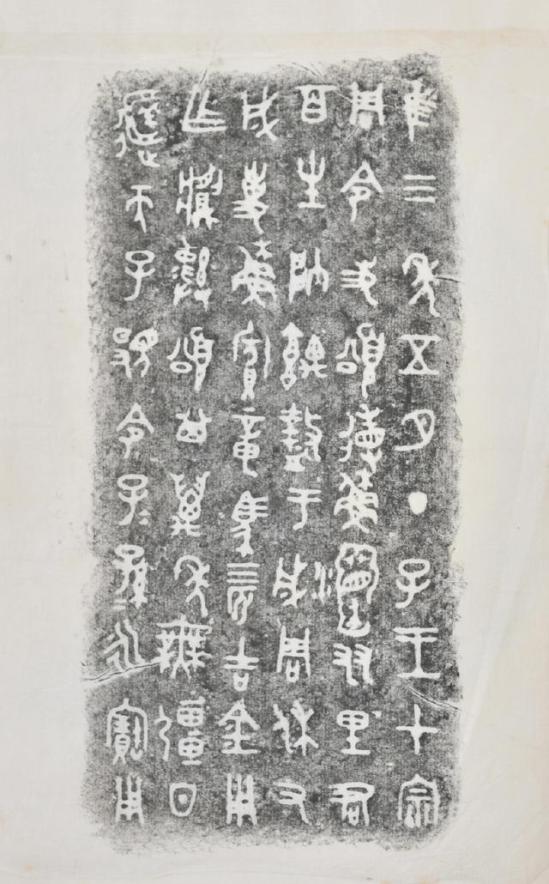 隹三年五月丁子王才宗
周令史頌省蘇𤅊友里君
百生帥堣盩于成周休又
成事蘇賓章馬四匹吉金用
乍𩰬彝頌其萬年無彊日
𨒙天子㫃令子=孫=永寶用